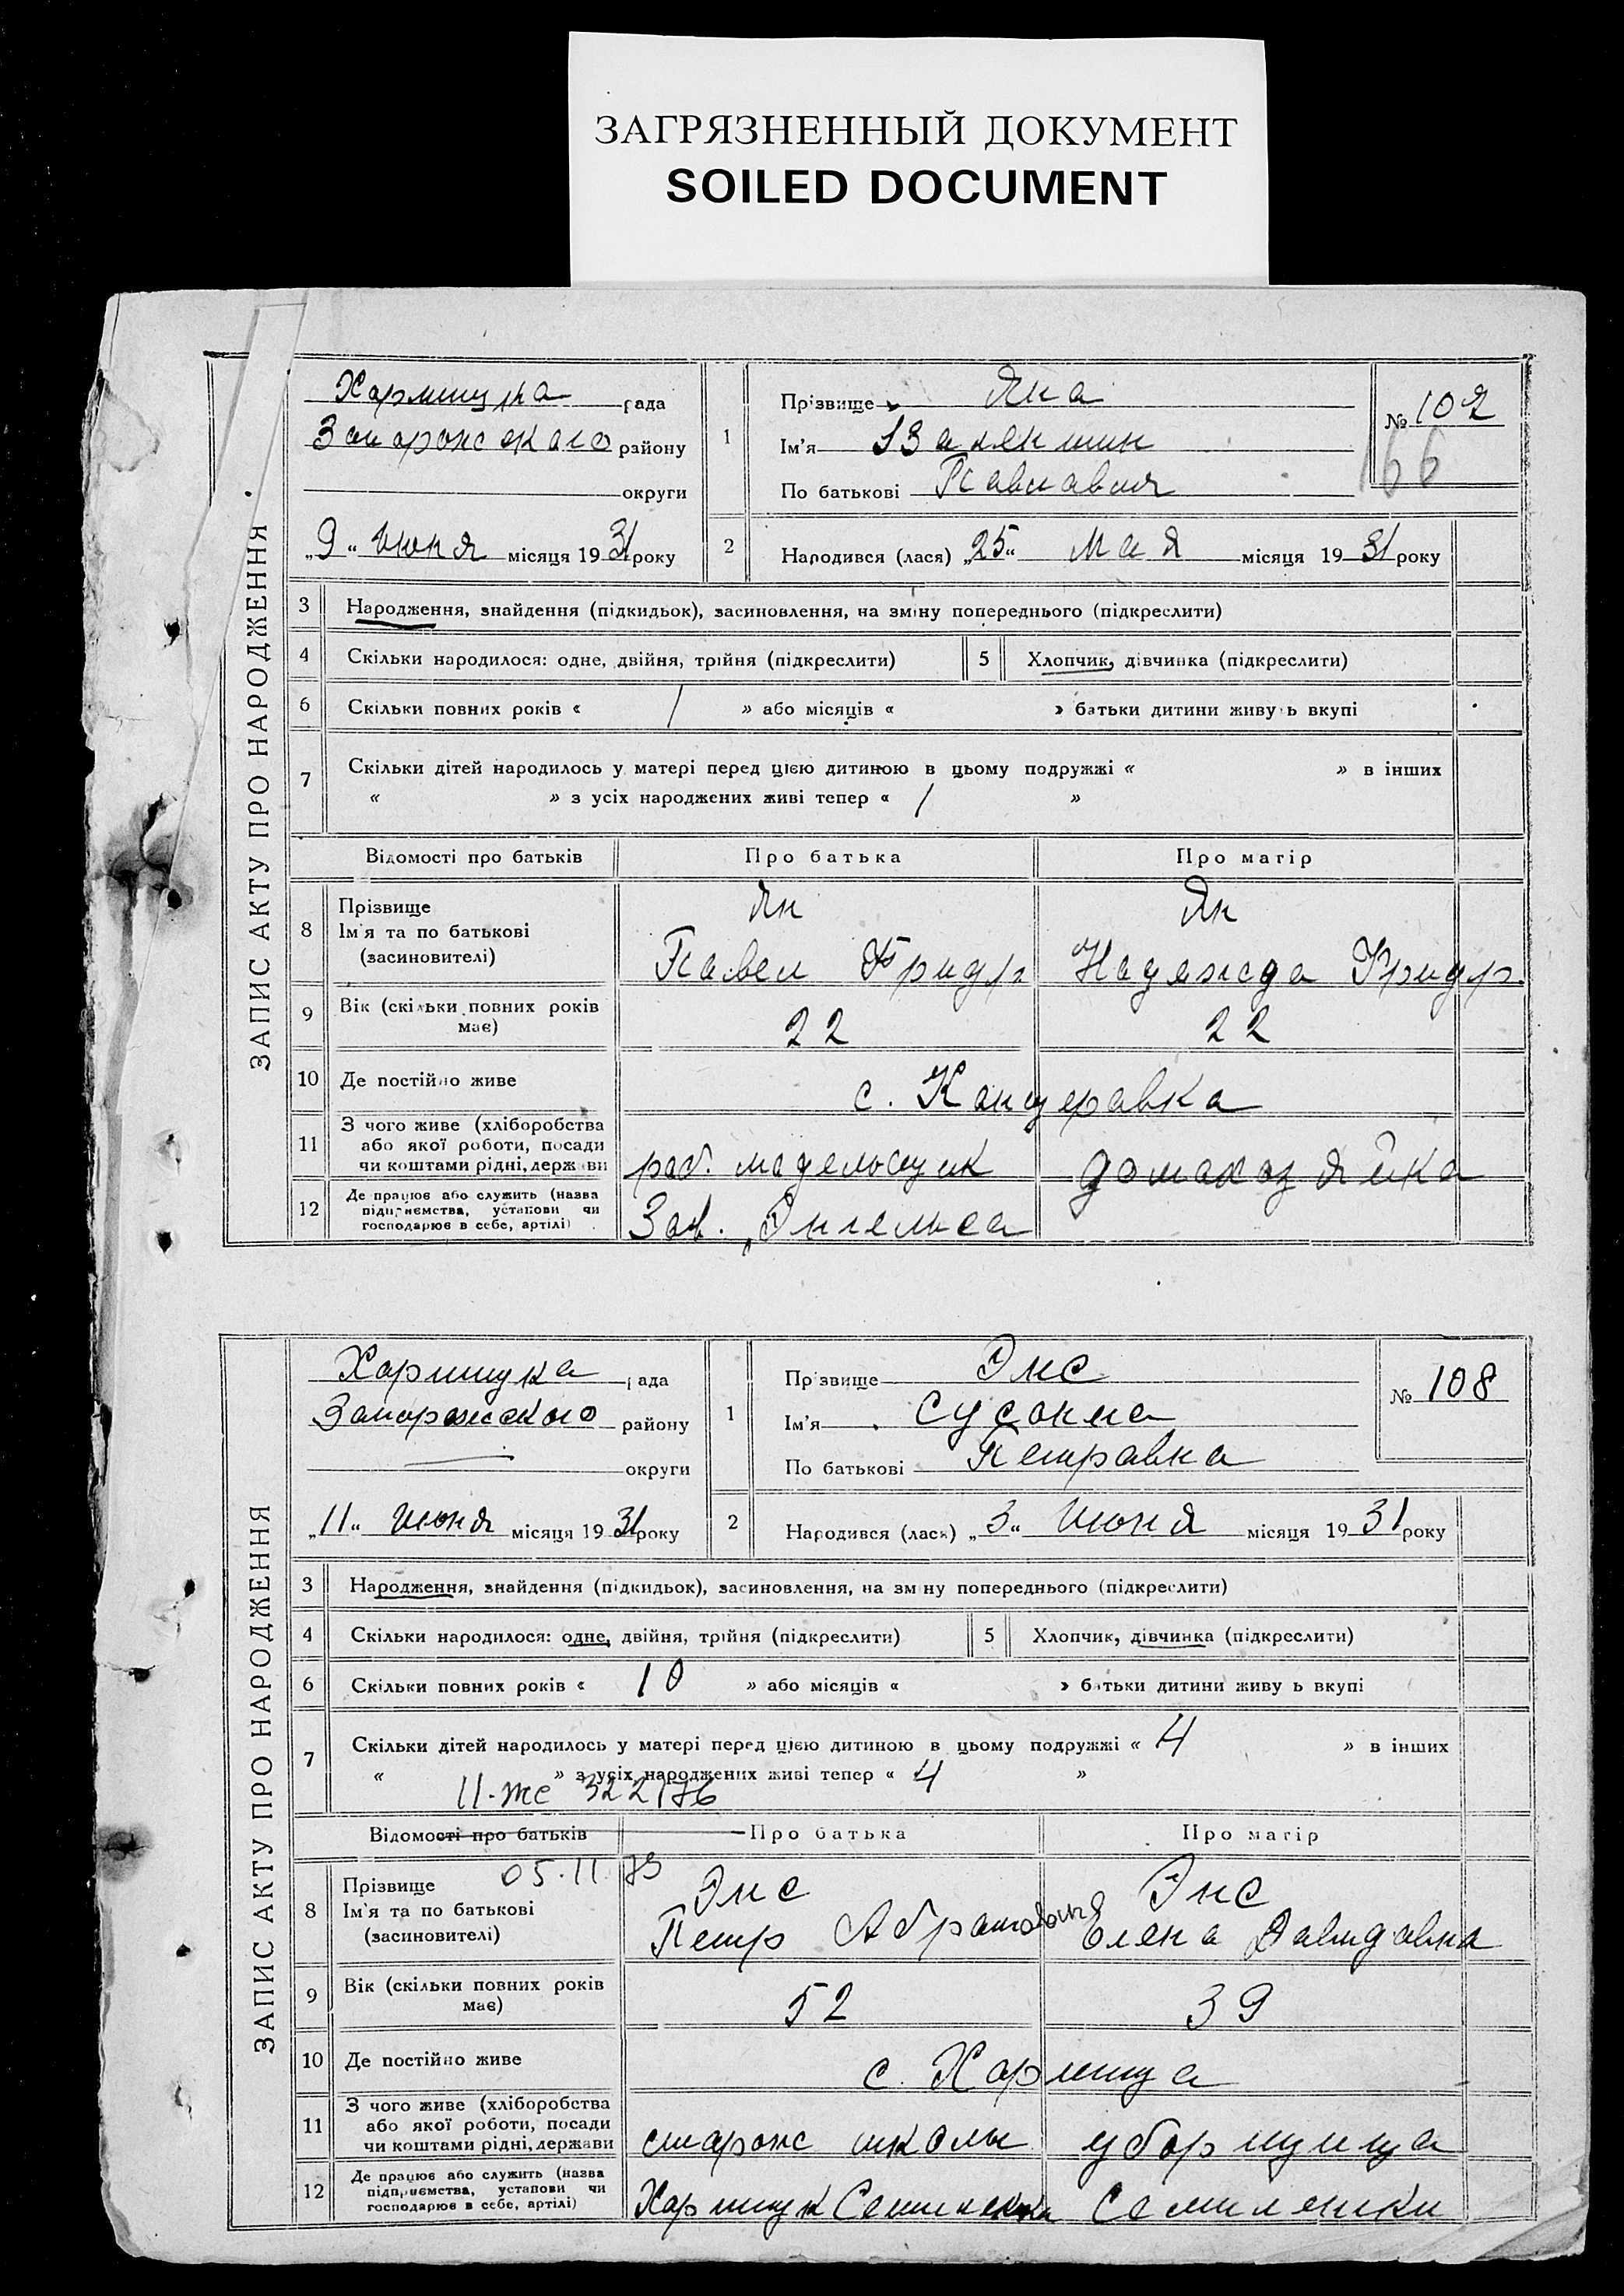 ЗАГРЯЗНЕННЫЙ ДОКУМЕНТ
SOILED DOCUMENT
ЗАПИС АКТУ ПРО НАРОДЖЕННЯ
рада
району
округи
„9“ июня місяця 1931 року
1
Прізвище Яна
Ім'я Валентин
По батькові
№ 107
66
2
Народився (лася) „25“ Мая місяця 1931 року
3 Народження, знайдення (підкидьок), засиновлення, на зміну попереднього (підкреслити)
4 Скільки народилося: одне, двійня, трійня (підкреслити)
5 Хлопчик, дівчинка (підкреслити)
6 Скільки повних років « / » або місяців « » батьки дитини живуть вкупі
7 Скільки дітей народилось у матері перед цією дитиною в цьому подружжі « » в інших
« » з усіх народжених живі тепер « / »
Відомості про батьків Про батька Про матір
8 Прізвище
Ім'я та по батькові
(засиновителі)
Ян Ян
Павел Фридр. Надежда Фридр.
9 Вік (скільки повних років має)
22 22
10 Де постійно живе
с. Канцеравка
11 З чого живе (хліборобства
або якої роботи, посади
чи коштами рідні, держави
раб. модельщик домахозяйка
12 Де працює або служить (назва
підприємства, установи чи
господарює в себе, артілі)
Зав. „Энгельса
ЗАПИС АКТУ ПРО НАРОДЖЕННЯ
рада
Запорожского району
округи
„11“ июня місяця 1931 року
1
Прізвище Энс
Ім'я Сусанна
По батькові Петравна
№ 108
2
Народився (лася) „3“ Июня місяця 1931 року
3 Народження, знайдення (підкидьок), засиновлення, на зміну попереднього (підкреслити)
4 Скільки народилося: одне, двійня, трійня (підкреслити)
5 Хлопчик, дівчинка (підкреслити)
6 Скільки повних років « 10 » або місяців « » батьки дитини живуть вкупі
7 Скільки дітей народилось у матері перед цією дитиною в цьому подружжі « 4 » в інших
« » з усіх народжених живі тепер « 4 »
II-же 322176
Відомості про батьків Про батька Про матір
05.11.
8 Прізвище
Ім'я та по батькові
(засиновителі)
Энс Энс
Петр Абрамович Елена Давидавна
9 Вік (скільки повних років має)
52 39
10 Де постійно живе
с. Хортица
11 З чого живе (хліборобства
або якої роботи, посади
чи коштами рідні, держави
старож школы уборщица
12 Де працює або служить (назва
підприємства, установи чи
господарює в себе, артілі)
Семилетки